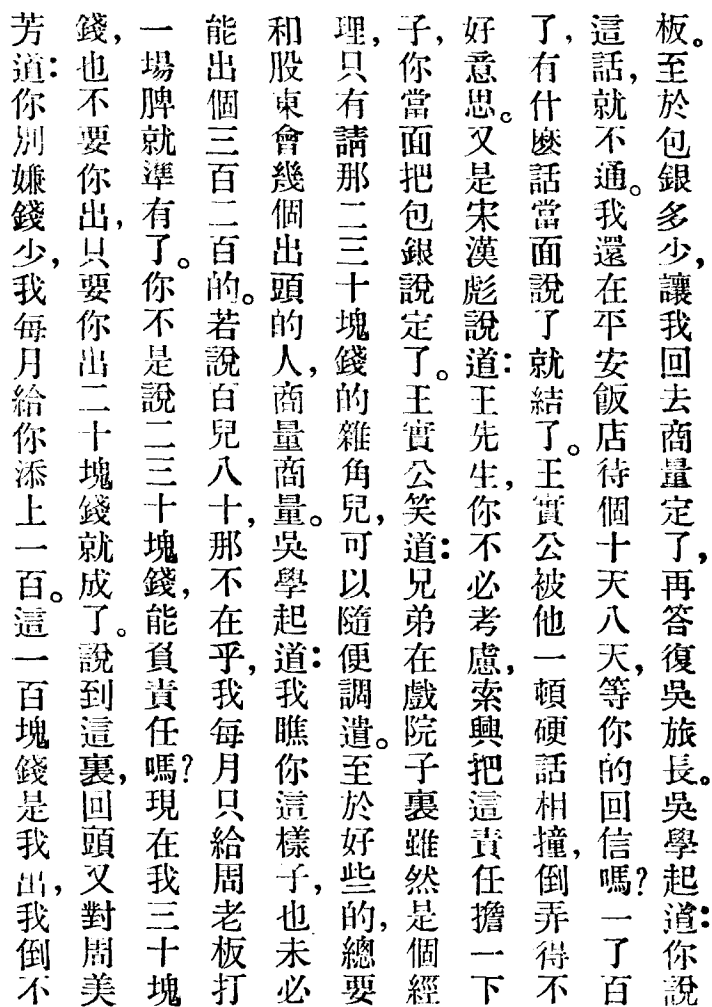 板。至於包銀多少，讓我回去商量定了，再答復吳旅長。吳學起道：你說
這話，就不通。我還在平安飯店待個十天八天，等你的回信嗎？一了百
了，有什麽話當面說了就結了。王實公被他一頓硬話相撞，倒弄得不
好意思。又是宋漢彪說道：王先生，你不必考慮，索興把這責任擔一下
子，你當面把包銀說定了。王實公笑道：兄弟在戲院子裏雖然是個經
理，只有請那二三十塊錢的雜角兒，可以隨便調遣。至於好些的，總要
和股東會幾個出頭的人，商量商量。吳學起道：我瞧你這樣子，也未必
能出個三百二百的。若說百兒八十，那不在乎，我每月只給周老板打
一場牌就準有了。你不是說二三十塊錢，能負責任嗎？現在我三十塊
錢，也不要你出，只要你出二十塊錢就成了。說到這裏，回頭又對周美
芳道：你別嫌錢少，我每月給你添上一百。這一百塊錢是我出，我倒不